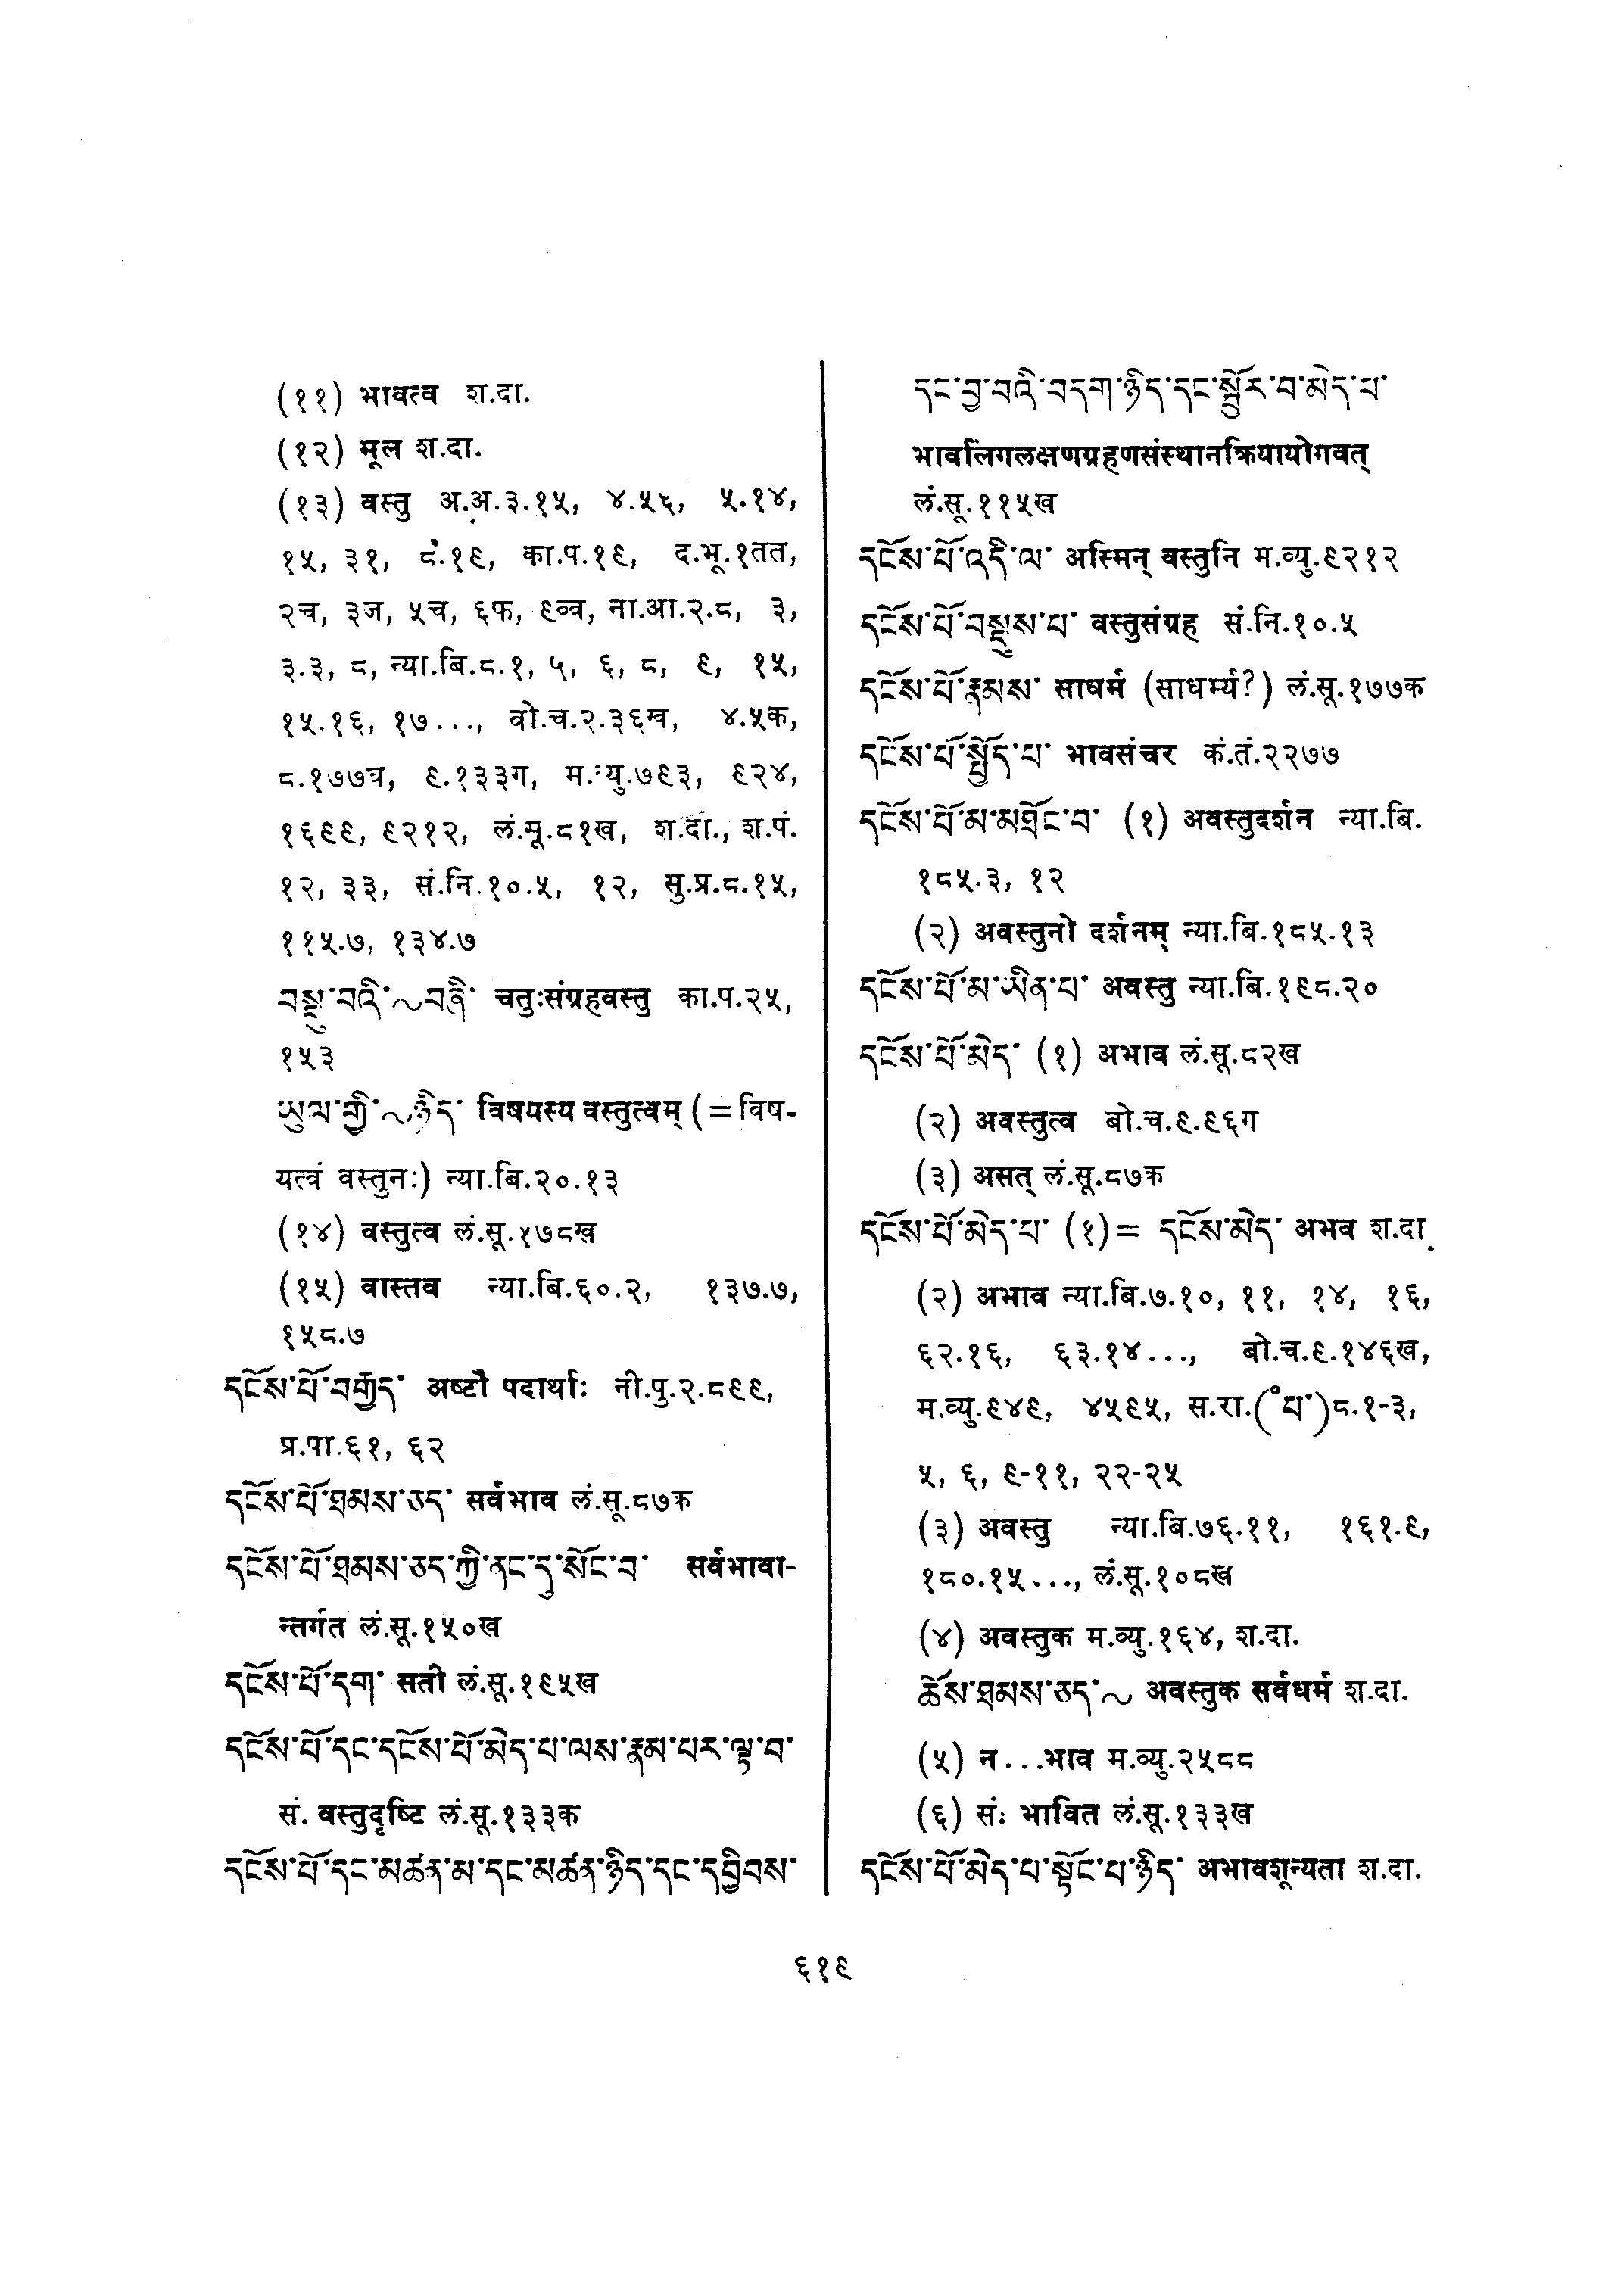 (११) भावत्व श.दा.
(१२) मूल श.दा.
(१३) वस्तु अ.अ.३.१५, ४.५६, ५.१४,
१५, ३१, ८.१९, का.प.१९, द.भू.१तत,
२च, ३ज, ५च, ६फ, ना.आ.२.८, ३,
३.३, ८, न्या.बि.८.१, ५, ६, ८, ९, १५,
१५.१६, १७..., बो.च.२.३६ख, ४.५क,
८.१७७त्र, ९.१३३ग, म.व्यु.७९३, ९२४,
१६९९, ९२१२, लं.सू.८१ख, श.दा., श.पं.
१२, ३३, सं.नि.१०.५, १२, सु.प्र.८.१५,
११५.७, १३४.७
བསྡུ་བའི་~བཞི་ चतुःसंग्रहवस्तु का.प.२५,
१५३
ཡུལ་གྱི་~ཉིད་ विषयस्य वस्तुत्वम् (=विष-
यत्वं वस्तुनः) न्या.बि.२०.१३
(१४) वस्तुत्व लं.सू.१७८ख
(१५) वास्तव न्या.बि.६०.२, १३७.७,
१५८.७
དངོས་པོ་བརྒྱད་ अष्टौ पदार्थाः नी.पु.२.८९९,
प्र.पा.६१, ६२
དངོས་པོ་ཐམས་ཅད་ सर्वभाव लं.सू.८७क
དངོས་པོ་ཐམས་ཅད་ཀྱི་ནང་དུ་སོང་བ་ सर्वभावा-
न्तर्गत लं.सू.१५०ख
དངོས་པོ་དག་ सती लं.सू.१९५ख
དངོས་པོ་དང་དངོས་པོ་མེད་པ་ལས་རྣམ་པར་ལྟ་བ་
सं. वस्तुदृष्टि लं.सू.१३३क
དངོས་པོ་དང་མཚན་མ་དང་མཚན་ཉིད་དང་དབྱིབས་
དང་བྱ་བའི་བདག་ཉིད་དང་སྦྱོར་བ་མེད་པ་
भावलिंगलक्षणग्रहणसंस्थानक्रियायोगवत्
लं.सू.११५ख
དངོས་པོ་འདི་ལ་ अस्मिन् वस्तुनि म.व्यु.९२१२
དངོས་པོ་བསྡུས་པ་ वस्तुसंग्रह सं.नि.१०.५
དངོས་པོ་རྣམས་ साधर्म (साधर्म्य?) लं.सू.१७७क
དངོས་པོ་སྤྱོད་པ་ भावसंचर कं.तं.२२७७
དངོས་པོ་མ་མཐོང་བ་ (१) अवस्तुदर्शन न्या.बि.
१८५.३, १२
(२) अवस्तुनो दर्शनम् न्या.बि.१८५.१३
དངོས་པོ་མ་ཡིན་པ་ अवस्तु न्या.बि.१९८.२०
དངོས་པོ་མེད་ (१) अभाव लं.सू.८२ख
(२) अवस्तुत्व बो.च.९.९६ग
(३) असत् लं.सू.८७क
དངོས་པོ་མེད་པ་ (१)= དངོས་མེད་ अभव श.दा.
(२) अभाव न्या.बि.७.१०, ११, १४, १६,
६२.१६, ६३.१४..., बो.च.९.१४६ख,
म.व्यु.९४९, ४५९५, स.रा.(°པ་)८.१-३,
५, ६, ९-११, २२-२५
(३) अवस्तु न्या.बि.७६.११, १६१.९,
१८०.१५..., लं.सू.१०८ख
(४) अवस्तुक म.व्यु.१६४, श.दा.
ཆོས་ཐམས་ཅད་~ अवस्तुक सर्वधर्म श.दा.
(५) न...भाव म.व्यु.२५८८
(६) सं: भावित लं.सू.१३३ख
དངོས་པོ་མེད་པ་སྟོང་པ་ཉིད་ अभावशून्यता श.दा.
६१९